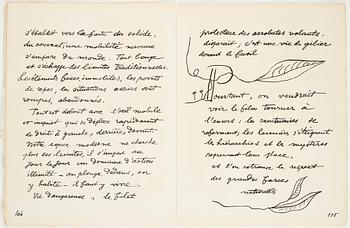 s'établit vers la fuite du solide,
du courant, une mobilité nerveuse
s'empare du monde. Tout bouge
et s'échappe des limites traditionnelles.
Les éléments fixes, immobiles, les points
de repos, les situations assises sont
rompues, abandonnés.
Tout est debout avec l'œil mobile
et inquiet qui se déplace rapidement
de droite à gauche, derrière, devant.
Notre époque moderne ne cherche
plus ses limites, il s'impose au
jour le jour un domaine d'action
illimité – on plonge dedans, on
y habite – il faut y vivre.
Vie dangereuse, le filet
104
protecteur des acrobates volants
disparait, c'est une vie de gibier
devant le fusil
Pourtant, on voudrait
voir le film tourner à
l'envers : les sanctuaires se
referment, les lumières s'éteignent
les hiérarchies et les mystères
reprennent leur place,
et l'on retrouve le respect
des grandes forces
naturelles
105